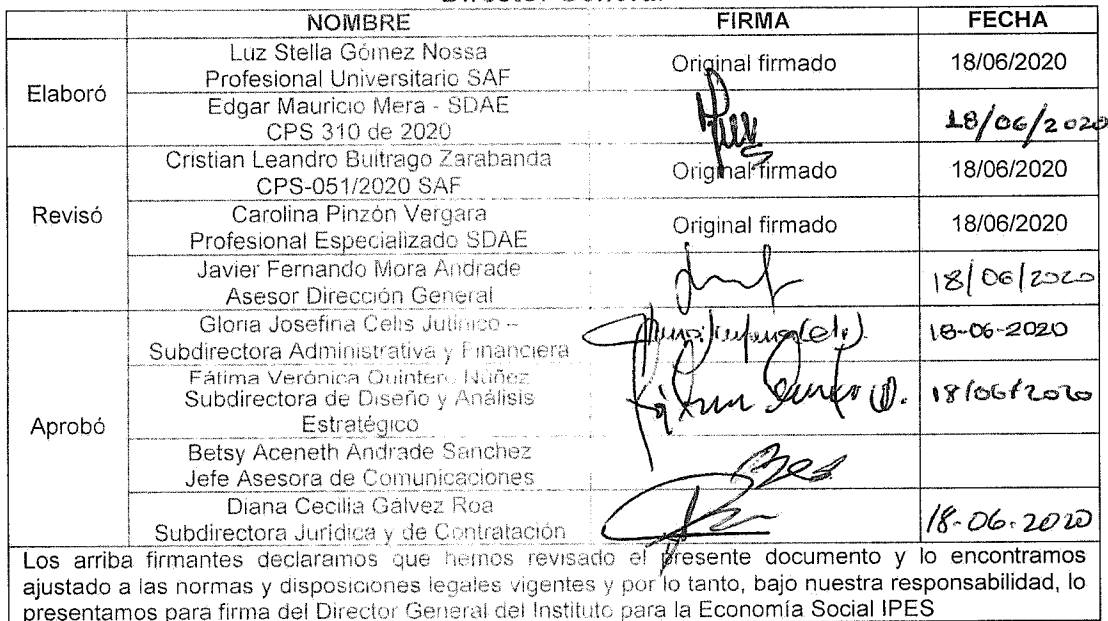 NOMBRE FIRMA FECHA
Elaboró
Luz Stella Gómez Nossa
Profesional Universitario SAF
Original firmado 18/06/2020
Edgar Mauricio Mera - SDAE
CPS 310 de 2020
18/06/2020
Revisó
Cristian Leandro Buitrago Zarabanda
CPS-051/2020 SAF
Original firmado 18/06/2020
Carolina Pinzón Vergara
Profesional Especializado SDAE
Original firmado 18/06/2020
Javier Fernando Mora Andrade
Asesor Dirección General
18/06/2020
Aprobó
Gloria Josefina Celis Jutinico –
Subdirectora Administrativa y Financiera
18-06-2020
Fátima Verónica Quintero Núñez
Subdirectora de Diseño y Análisis
Estratégico
18/06/2020
Betsy Aceneth Andrade Sanchez
Jefe Asesora de Comunicaciones
Diana Cecilia Gálvez Roa
Subdirectora Jurídica y de Contratación
18-06-2020
Los arriba firmantes declaramos que hemos revisado el presente documento y lo encontramos
ajustado a las normas y disposiciones legales vigentes y por lo tanto, bajo nuestra responsabilidad, lo
presentamos para firma del Director General del Instituto para la Economía Social IPES